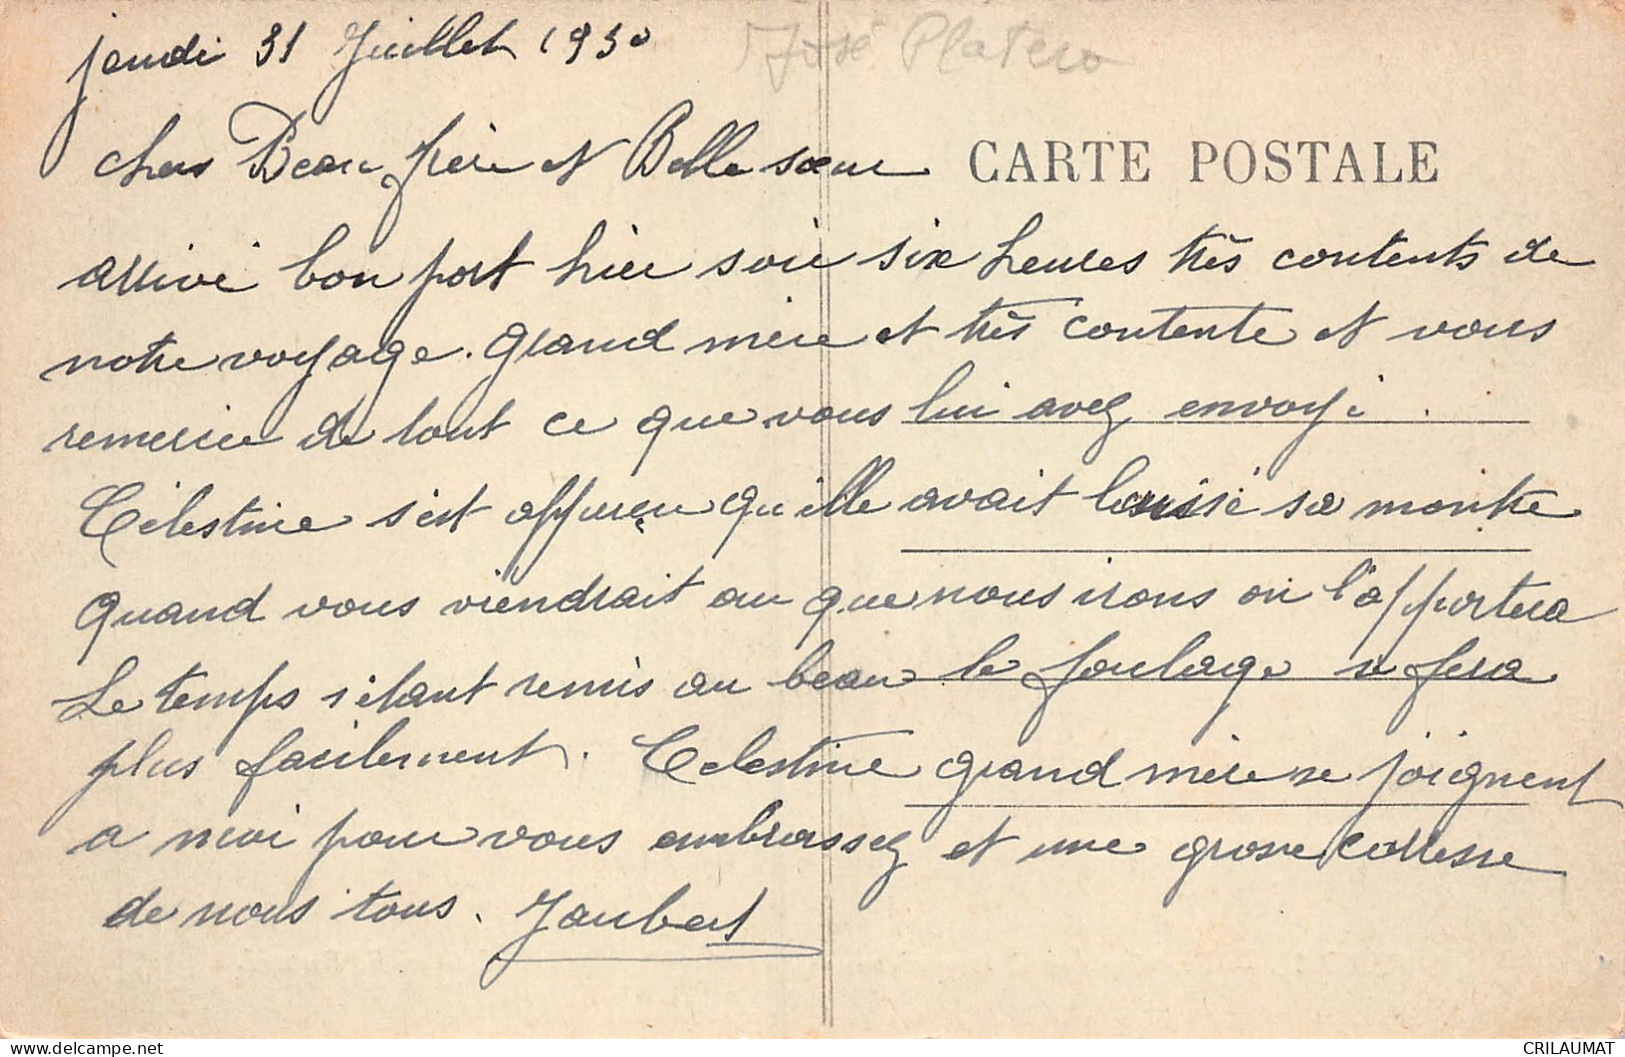 José Platero
jeudi 31 Juillet 1930
CARTE POSTALE
chers Beau frère et Belle sœur
arrivé bon port hier soir six heures très contents de
notre voyage. Grand mère et très contente et vous
remercie de tout ce que vous lui avez envoyé.
Célestine s'est apperçu qu'elle avait laissé sa montre
quand vous viendrait ou que nous irons on l'apportera
Le temps s'étant remis au beau le foulage se fera
plus facilement. Celestine grand mère se joignent
a moi pour vous embrassez et une grosse carresse
de nous tous. Jaubert
CRILAUMAT